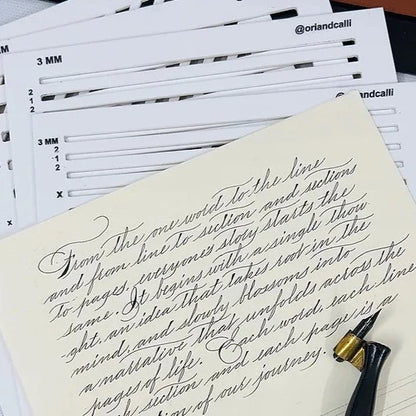 @oriandcalli
3 MM
2
1
2
@oriandcalli
3 MM
2
1
2
X
From the one word to the line
and from line to section and sections
to pages, everyone's story starts the
same. It begins with a single thou
-ght, an idea that takes root in the
mind, and slowly blossoms into
a narrative that unfolds across the
pages of life. Each word, each line
section and each page is a
of our journey.